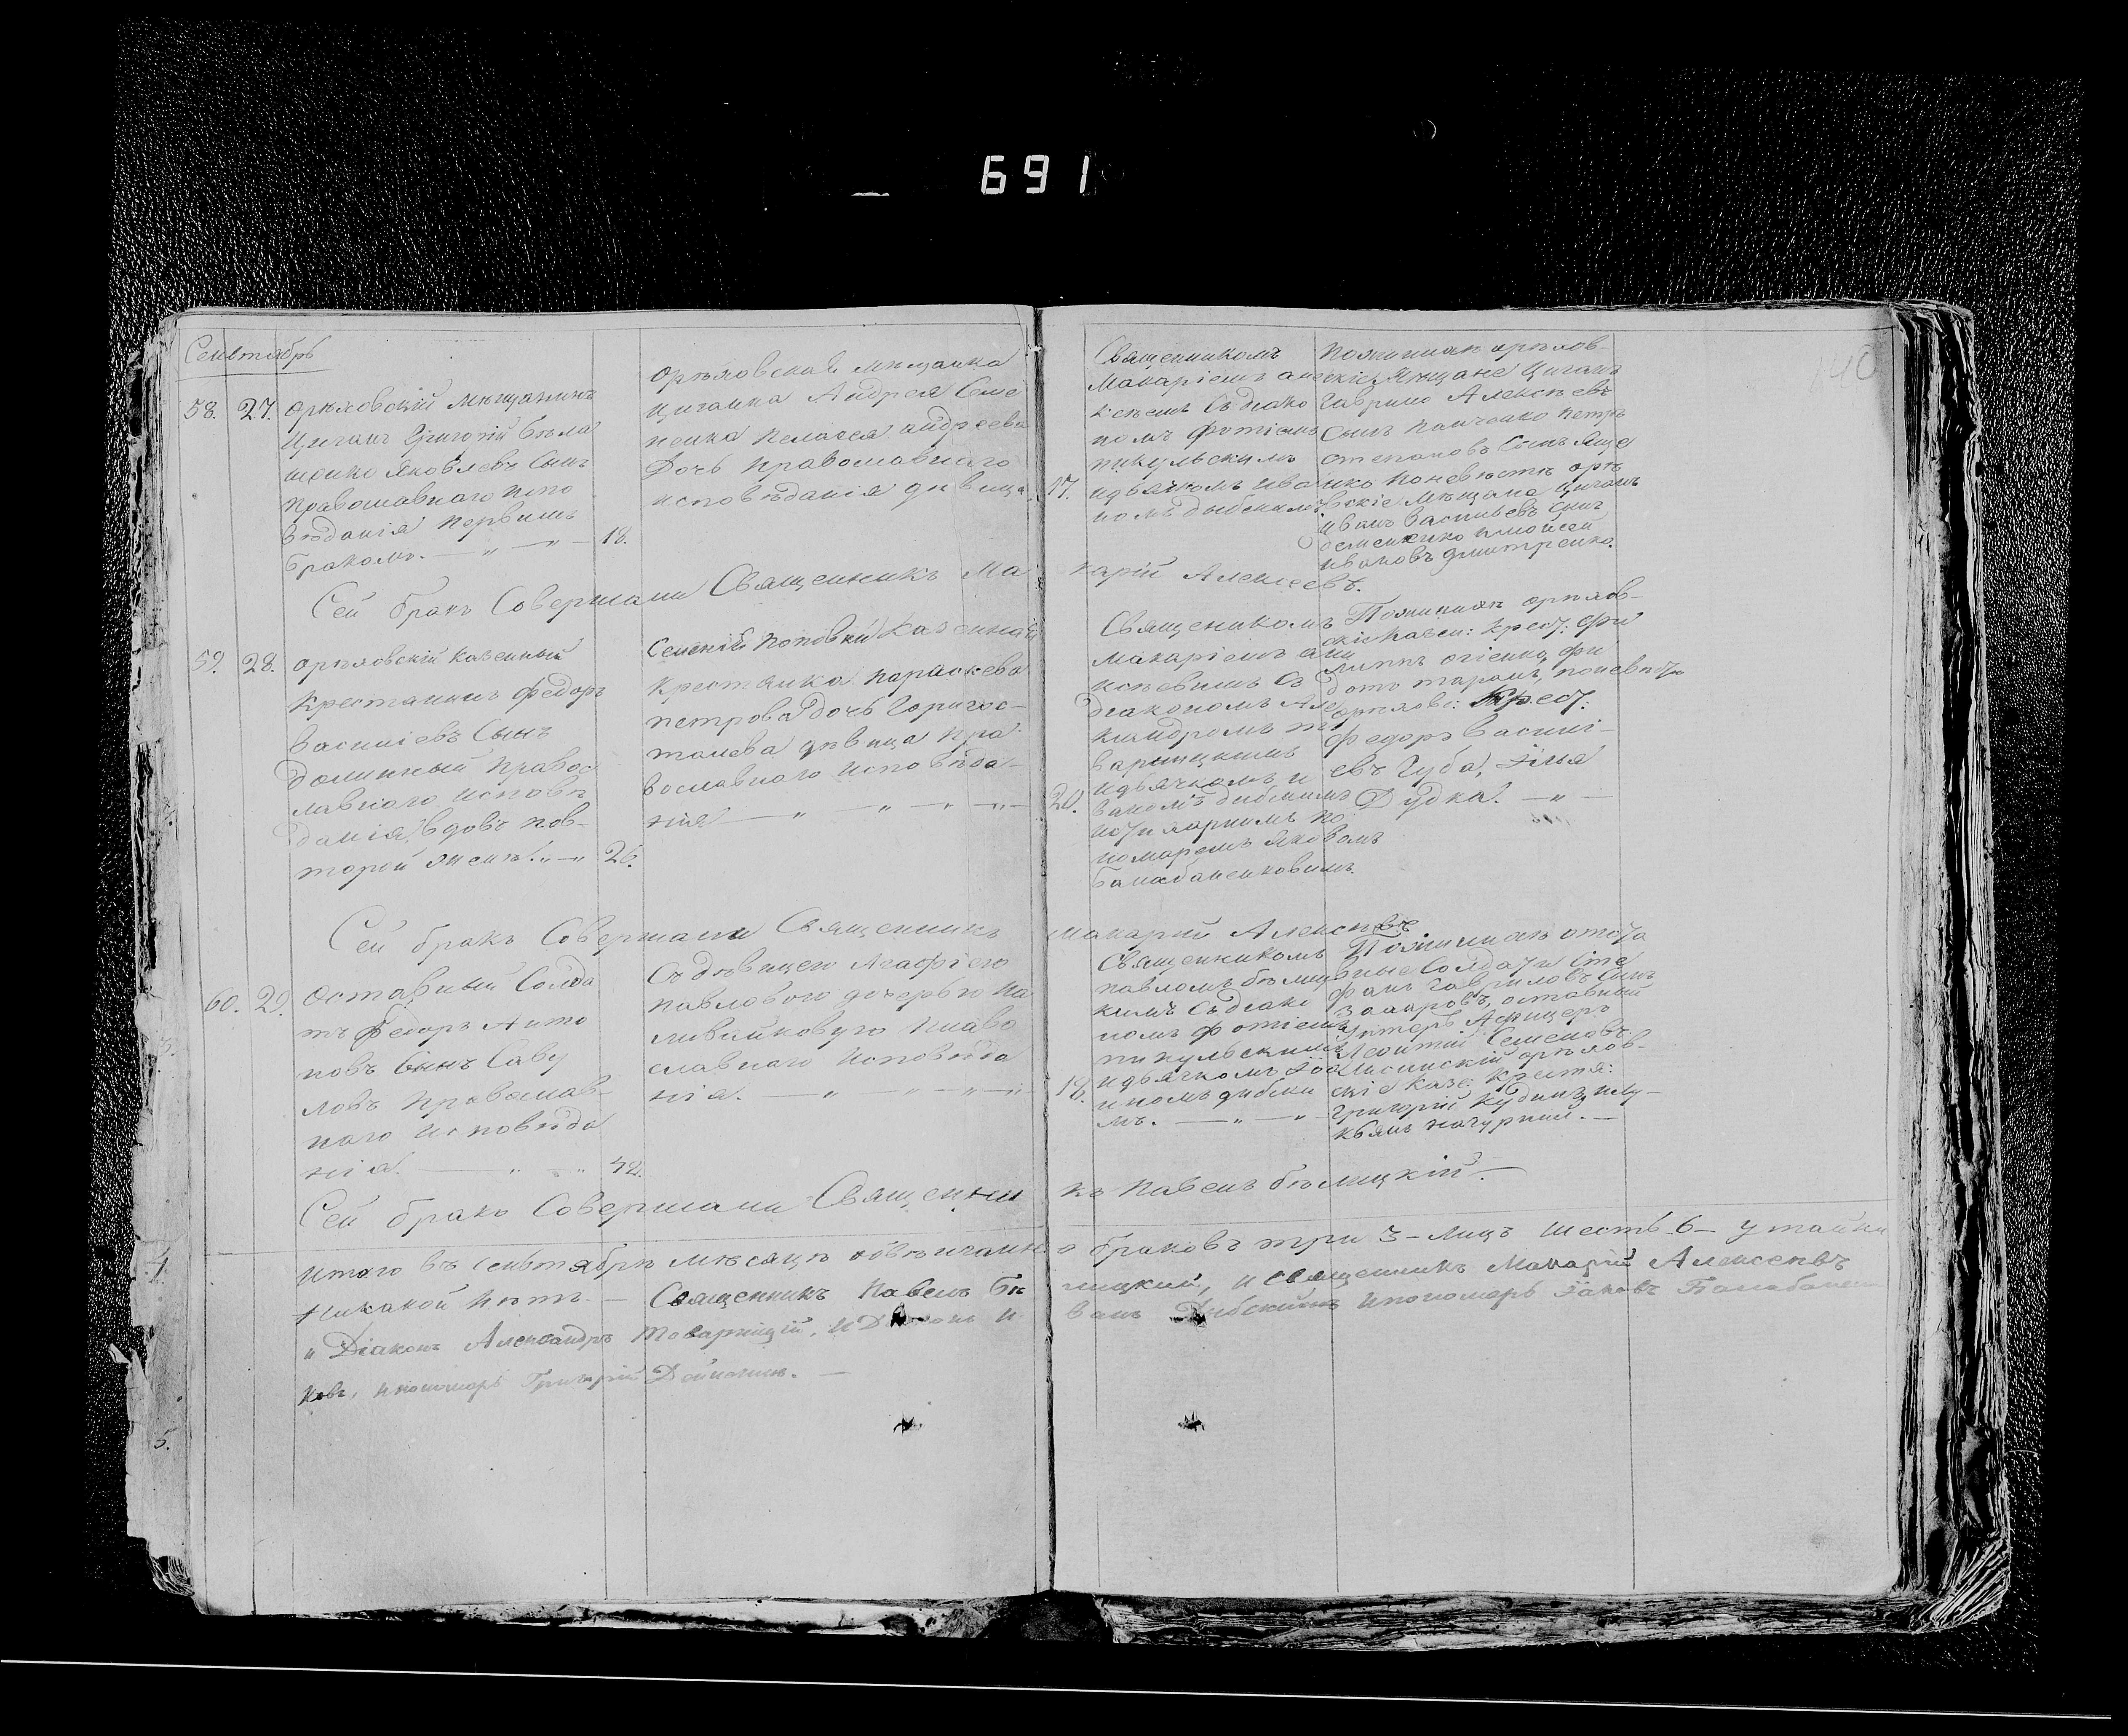 691
Сентябрь
58. 27. Орѣховскій мѣщанинъ
Циганъ Григорій Бѣла
шенко Яковлевъ Сынъ
православнаго испо
вѣданія первымъ
бракомъ. 18.
Орѣховская мещанка
циганка Андрея Семе
ненка Пелагея Андреева
Дочь православнаго
исповѣданія дѣвица 17.
Священникомъ
Макаріемъ Але
ксѣемъ Съ діако
номъ Фотіемъ
пикульскимъ
идьячкомъ Ива
номъ дыбским
Пожинихѣ орѣхов
скіе Мѣщане Циганъ
Гаврило Алексѣевъ
Сынъ Панченко Петръ
Степановъ Сынъ Яще
нко Поневѣстѣ орѣ
вскіе Мѣщане Циганъ
Иванъ Васильевъ Сынъ
Семененко и Мойсей
Ивановъ Дмитренко.
Сей бракъ Совершали Священникъ Ма
карій Алексеевъ.
59. 28. орѣховскій казенный
Крестянинъ Федоръ
Василіевъ Сынъ
Долинный правос
лавнаго исповѣ
данія вдовъ пов-
торой женѣ. 26.
Селенія Поповки Казенная
крестянка Параскева
петрова дочь
дѣвица пра
вославнаго исповѣда-
нія 20.
Священикомъ
Макаріемъ Але
ксѣевымъ Съ
діакономъ Але
ксандромъ то
варницкимъ
идьячкомъ и
ваномъ дибскимъ
по
номаремъ Яковомъ
банабаненковимъ.
Пожинихѣ орѣхов-
скіе Казен: Крест: Фи
липпъ огіенко, Фи
донъ таранъ, поневѣстѣ
орѣхове: Крест:
Федоръ Василі-
евъ Губа, Илія
Дудка.
Сей бракъ Совершали Священникъ
Макарій Алексѣевъ
60. 29. Оставный Солда
тъ Федоръ Анто
новъ Сынъ Саву
ловъ Православ-
наго исповѣда
нія. 42.
Съ дѣвицею Агафіею
павловою дочерью На
ливайковую Право
славнаго Исповѣда
нія. 18.
Священникомъ
павломъ бѣлиц
кимъ Съ діако
номъ Фотіемъ
пикульскимъ
идьячкомъ Іоа
нномъ дибски
мъ.
Пожинихѣ отста
вные Солдати Сте
фанъ Гавриловъ Сынъ
Захаровъ, оставный
Унтеръ Афицеръ
Леонтій Семеновъ
орѣхов-
скіе Казе: Крестя:
Григорій Кудинъ, и Лу-
кьянъ
Сей бракъ Совершали Священни
къ Павелъ бѣлицкій.
Итого въ Сентябрѣ мѣсяцѣ обвѣнчанн о браковъ три 3 - Лицъ шесть 6 - утайки
Никакой Нѣтъ. — Священникъ Павелъ Бѣ лицкій, и Священникъ Макарій Алексеевъ
Діаконъ Александръ Товарницкій, и Дьячокъ И ванъ Дибскій и пономаръ Іаковъ Банабанен
ковъ, и пономаръ Григорій Дейнекинъ.
4.
5.